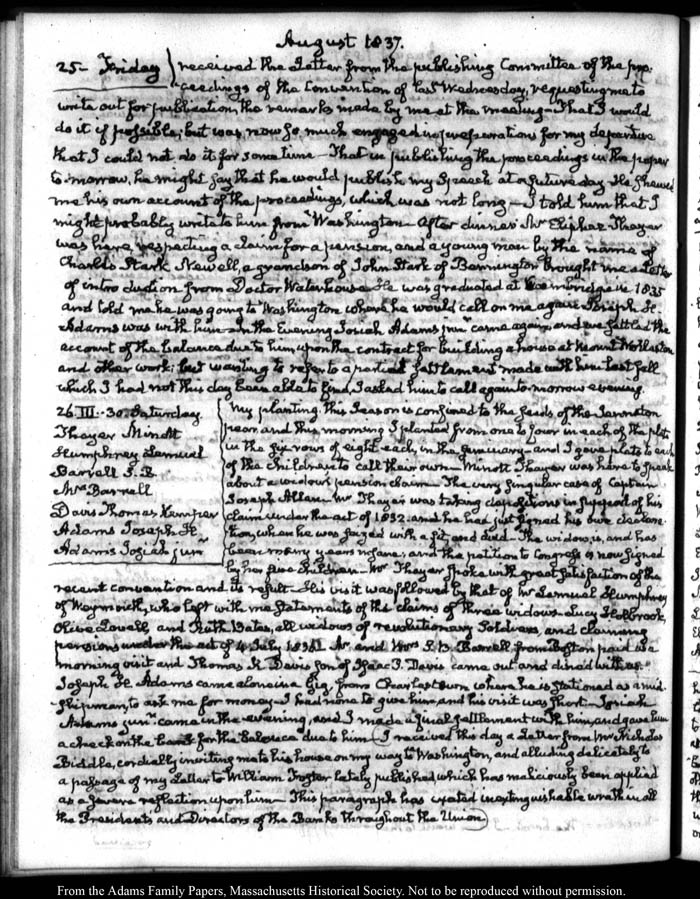 August 1837.
25— Friday received the Letter from the publishing Committee of the pro-
ceedings of the Convention of last Wednesday, requesting me to
write out for publication, the remarks made by me at the meeting— That I would
do it if possible; but was now so much engaged in preparations for my departure
that I could not do it for some time— That in publishing the proceedings in the paper
to-morrow, he might say that he would publish my Speech at a future day. He shewed
me his own account of the proceedings, which was not long— I told him that I
might probably write to him from Washington. After dinner Mr Eliphaz Thayer
was here, respecting a claim for a pension, and a young man by the name of
Charles Stark Newell, a grandson of John Stark of Bennington brought me a Letter
of introduction from Doctor Waterhouse. He was graduated at Cambridge in 1835
and told me he was going to Washington where he would call on me again. Joseph H.
Adams was with him— In the Evening Josiah Adams junr. came again, and we settled the
account of the balance due to him, upon the contract for building a house at Mount Wollaston
and other work; but wanting to refer to a partial settlement made with him last fall
which I had not this day been able to find, I asked him to call again to-morrow evening.
26. III.-30. Saturday
Thayer Minott
Humphrey Lemuel
Barrell S. B.
Mrs Barrell
Davis Thomas Kemper
Adams Joseph H.
Adams Josiah junr
My planting this Season is confined to the seeds of the
pear, and this morning I planted from one to four in each of the plots
in the six rows of eight each, in the Seminary— and I gave plats to each
of the children to call their own— Minott Thayer was here to speak
about a widow's pension claim— The very singular case of Captain
Joseph Allen— Mr Thayer was taking depositions in support of his
claim under the act of 1832. and he had just signed his own declara-
tion, when he was seized with a fit and died— The widow is, and has
been many years insane, and the petition to Congress is now signed
by her five Children— Mr Thayer spoke with great satisfaction of the
recent convention and its result— His visit was followed by that of Mr Lemuel Humphrey
of Weymouth, who left with me Statements of the claims of three widows— Lucy Holbrook,
Olive Lovell, and Ruth Bates, all widows of revolutionary Soldiers, and claiming
pensions under the act of 4 July 1836. Mr. and Mrs S. B. Barrell from Boston paid us a
morning visit and Thomas K. Davis son of Isaac P. Davis came out and dined with us.
Joseph H. Adams came alone in a Gig from Charlestown where he is stationed as a mid-
-shipman, to ask me for money— I had none to give him, and his visit was short— Josiah
Adams junr. came in the evening, and I made a final settlement with him, and gave him
a check on the bank for the balance due to him (I received this day a Letter from Mr Nicholas
Biddle, cordially inviting me to his house on my way to Washington, and alluding delicately to
a passage of my Letter to William Foster lately published which has maliciously been applied
as a severe reflection upon him— This paragraph has excited inextinguishable wrath in all
the Presidents and Directors of the Banks throughout the Union)
From the Adams Family Papers, Massachusetts Historical Society. Not to be reproduced without permission.